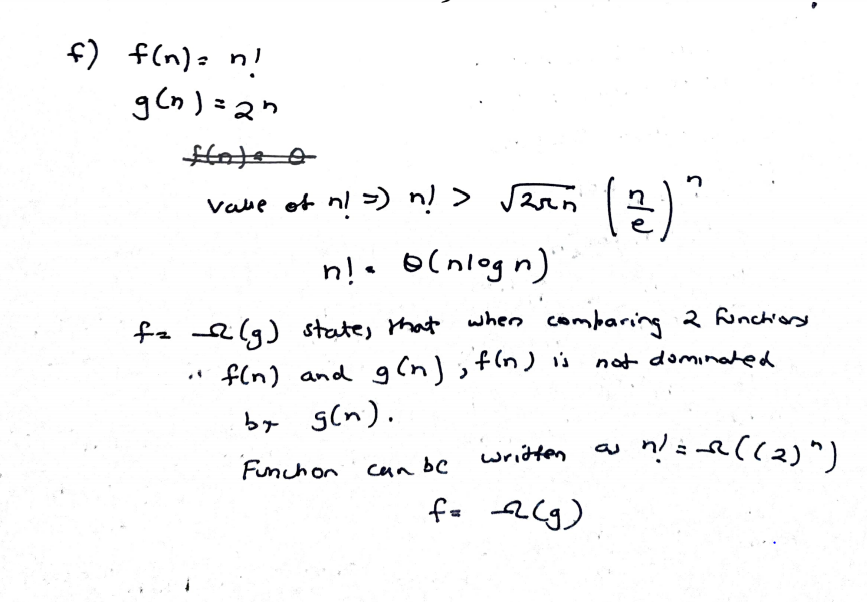 f) f(n) = n!
g(n) = 2^n
f(n) = θ
value of n! => n! > √2πn (n/e)^n
n! = θ(nlog n)
f = Ω(g) states that when comparing 2 functions
f(n) and g(n), f(n) is not dominated
by g(n).
Function can be written as n! = Ω((2)^n)
f = Ω(g)